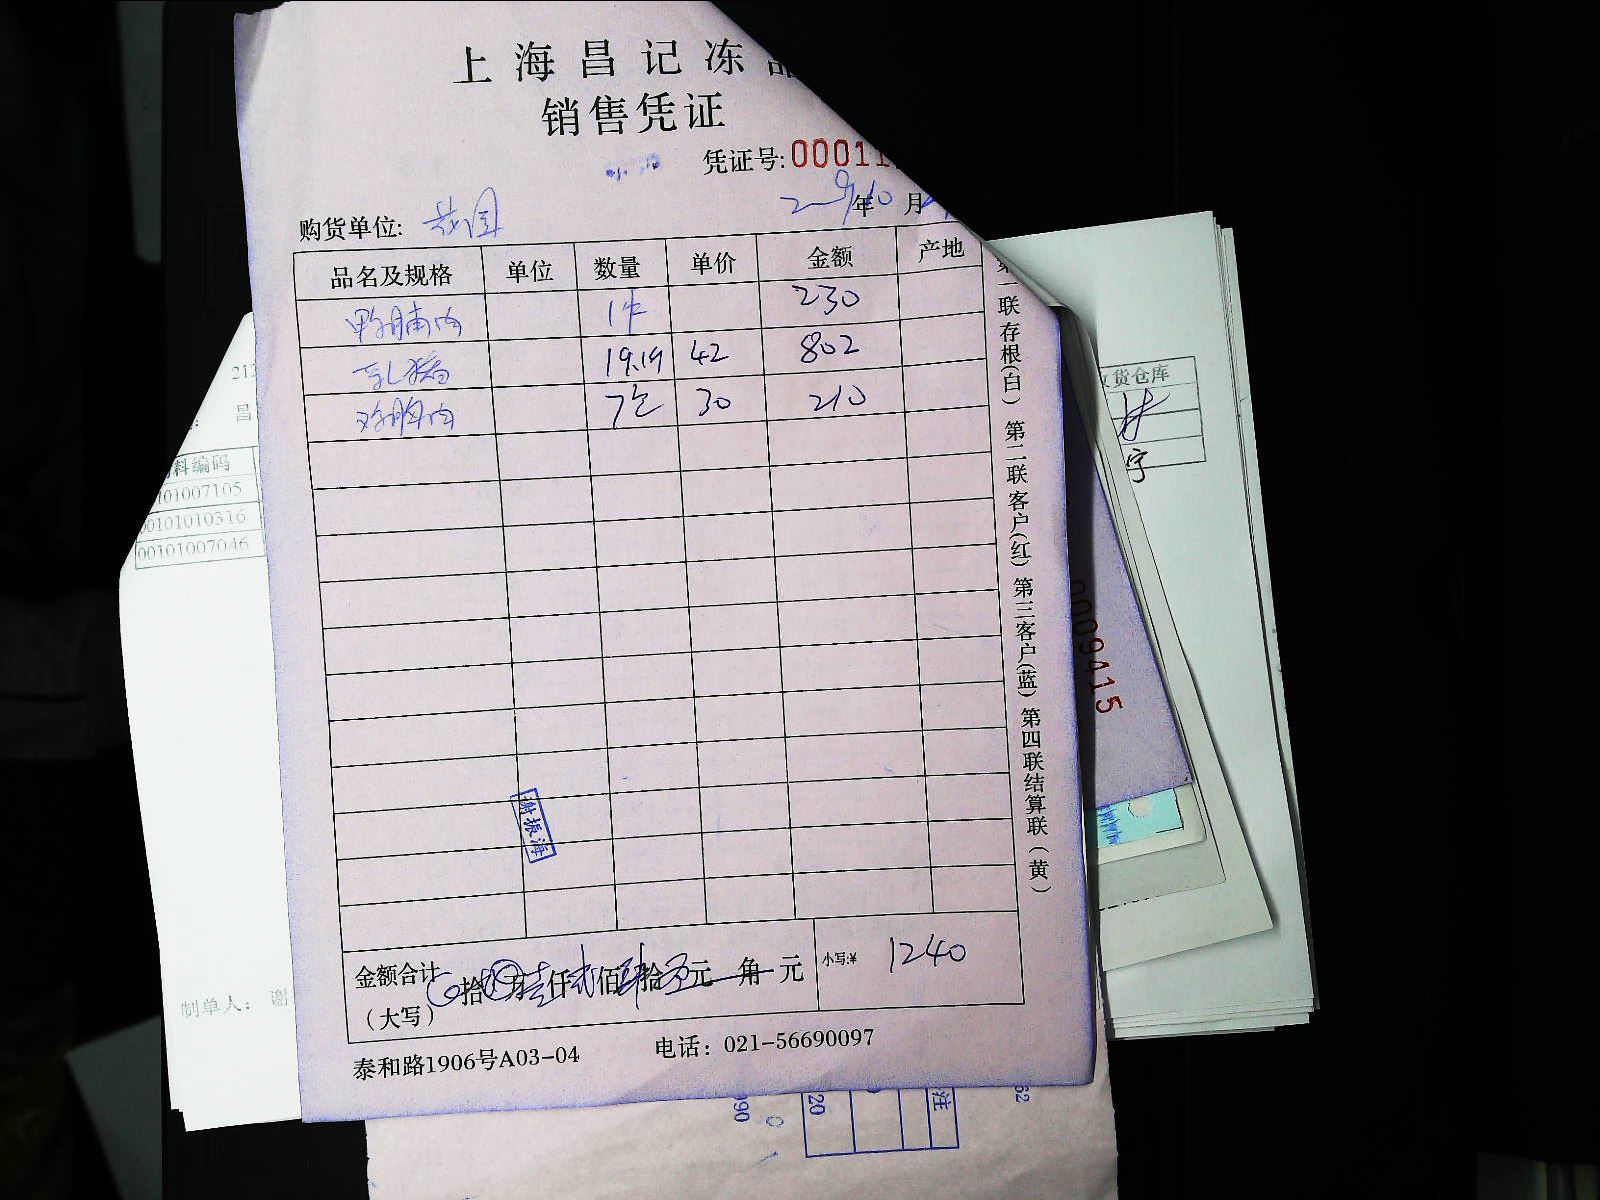 上海昌记冻品
销售凭证
凭证号:00011
年10月
购货单位:
品名及规格 单位 数量 单价 金额 产地
鸭脯肉 1件 230
乳猪 19.19 42 802
鸡胸肉 7包 30 210
金额合计 拾万壹仟贰佰肆拾元角元 小写:¥ 1240
(大写)
泰和路1906号A03-04 电话: 021-56690097
第一联存根(白) 第二联客户(红) 第三客户(蓝) 第四联结算联(黄)
谢振海
213
昌
料编码
101007105
00101010316
00101007046
制单人: 谢
货仓库
宇
0009415
990
20
注
62